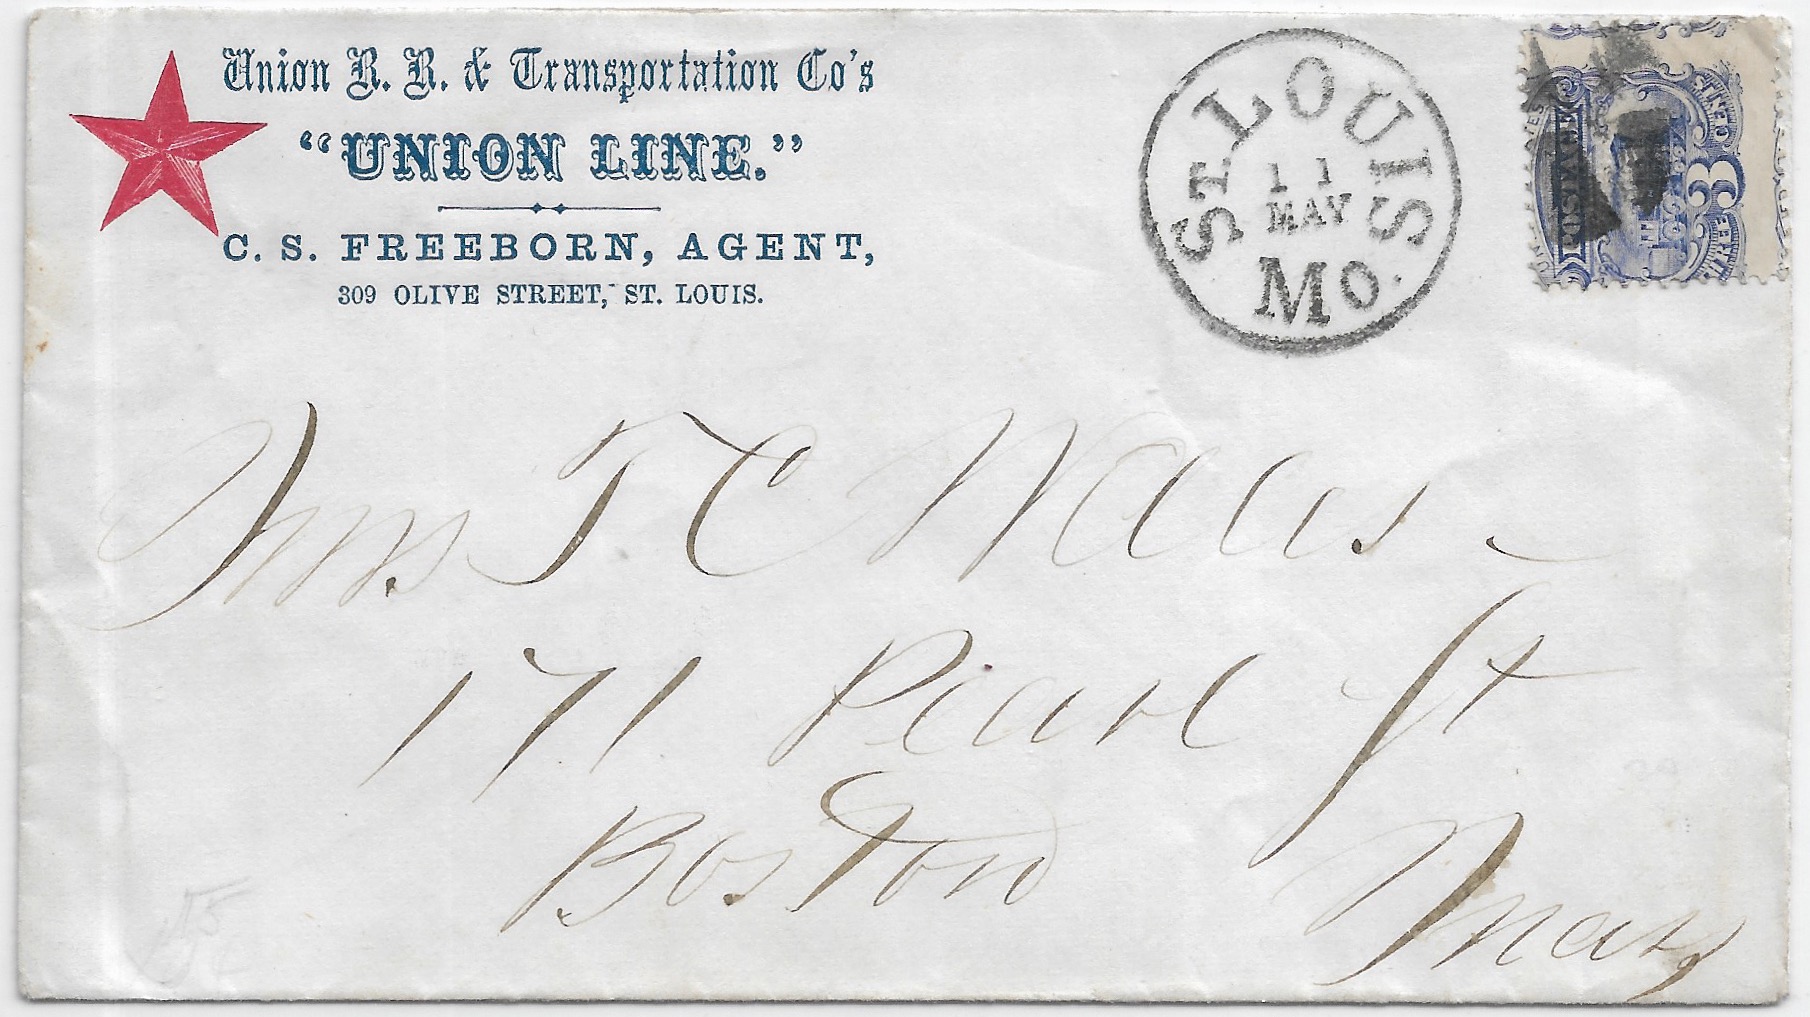 Union R. R. & Transportation Co's
"UNION LINE."
C. S. FREEBORN, AGENT,
309 OLIVE STREET, ST. LOUIS.
ST. LOUIS
11
MAY
Mo.
POSTAGE
3
THREE CENTS
Mrs T C
171 Pearl St
Boston
Mass